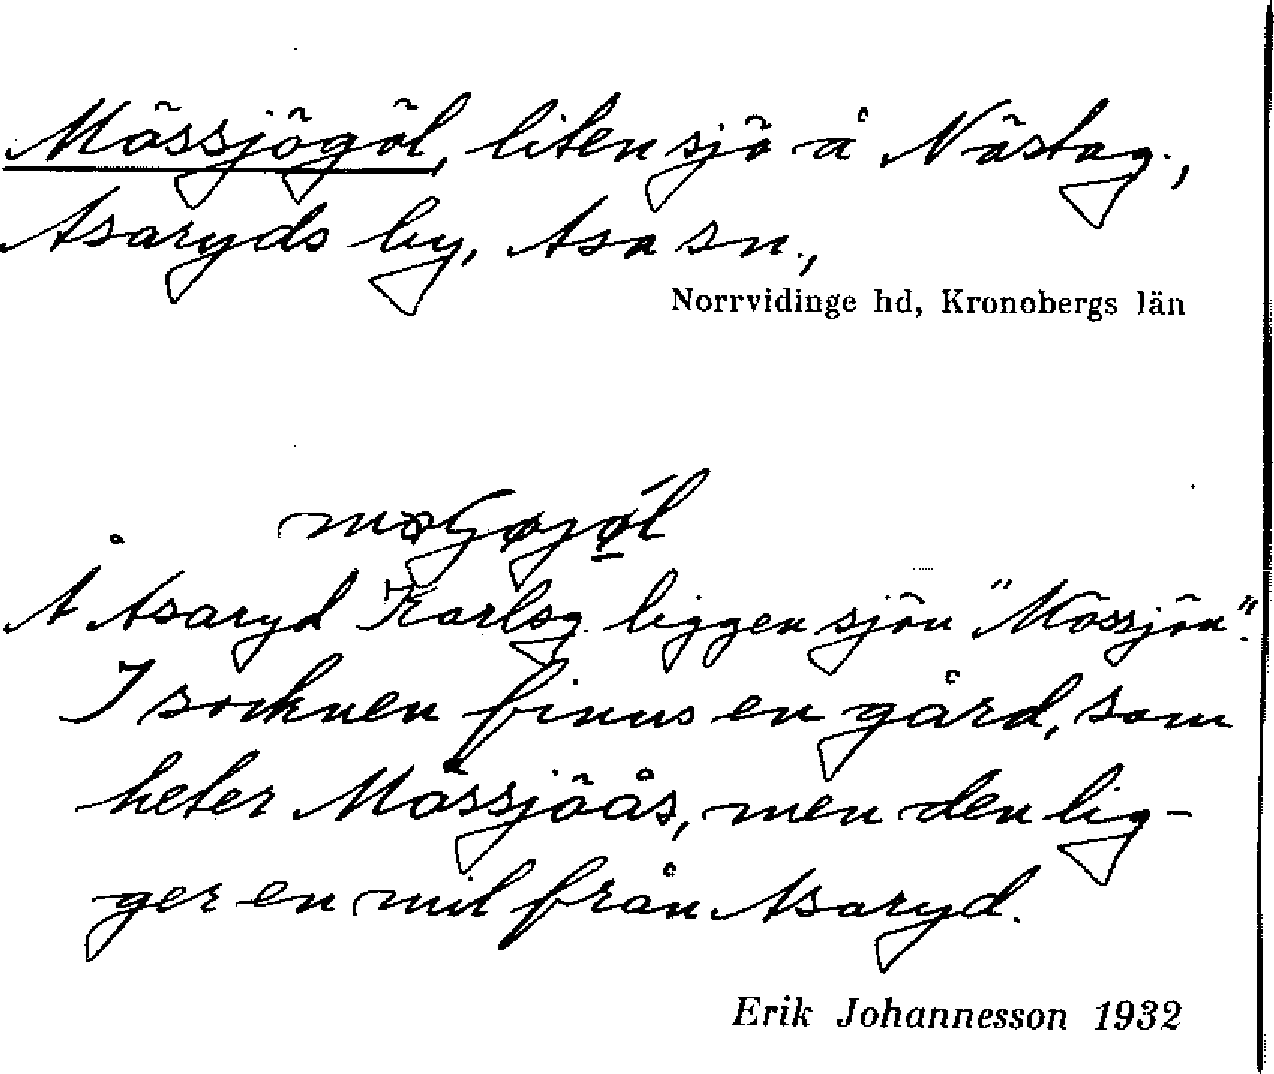 Mössjögöl, liten sjö å Nästag.,
Asaryds by, Asa sn.,
Norrvidinge hd, Kronobergs län
Å Asaryd Karlsg. ligger sjön "Mössjön".
I socknen finns en gård, som
heter Mössjöås, men den lig-
ger en mil från Asaryd.
Erik Johannesson 1932